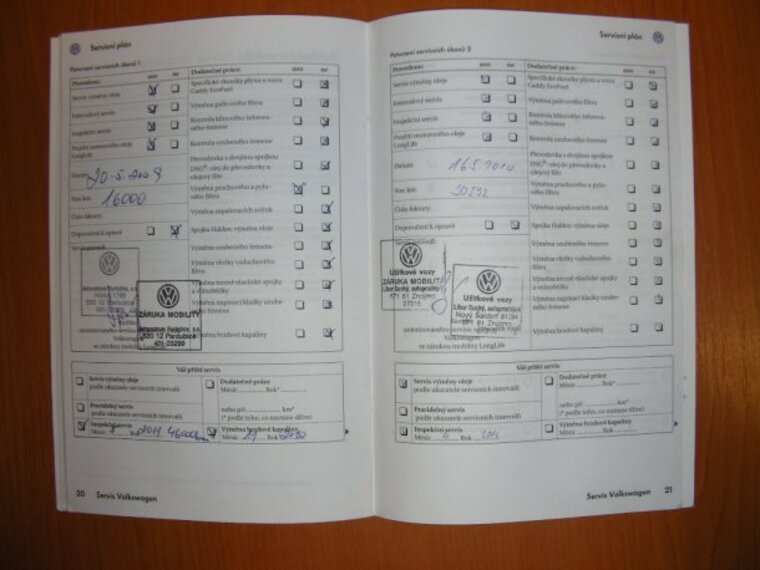 Servisní plán
Potvrzení servisních úkonů 1
Provedeno: ano ne
Servis výměny oleje
Intervalový servis
Inspekční servis
Použití motorového oleje LongLife
Datum: 20.5.2009
Stav km: 16000
Číslo faktury:
Doporučení k opravě
Dodatečné práce: ano ne
Specifické zkoušky plynu u vozu
Caddy EcoFuel
Výměna palivového filtru
Kontrola klínového žebrovaného řemene
Kontrola ozubeného řemene
Převodovka s dvojitou spojkou
DSG®: olej do převodovky a
olejový filtr
Výměna prachového a pylového filtru
Výměna zapalovacích svíček
Spojka Haldex: výměna oleje
Výměna ozubeného řemene
Výměna vložky vzduchového
filtru
Výměna brzdové kapaliny
ZÁRUKA MOBILITY
530 12 Pardubice
401-23299
Volkswagen
se zárukou mobility LongLife
Váš příští servis
Servis výměny oleje
podle ukazatele servisních intervalů
Pravidelný servis
podle ukazatele servisních intervalů
Inspekční servis
Měsíc Rok 2011 46000km
Dodatečné práce
Měsíc Rok*
nebo při km*
(* podle toho, co nastane dříve)
Výměna brzdové kapaliny
Měsíc 11 Rok 2010
20 Servis Volkswagen
Servisní plán
Potvrzení servisních úkonů 2
Provedeno: ano ne
Servis výměny oleje
Intervalový servis
Inspekční servis
Použití motorového oleje
LongLife
Datum: 16.5.2010
Stav km: 30532
Číslo faktury:
Doporučení k opravě
Dodatečné práce: ano ne
Specifické zkoušky plynu u vozu
Caddy EcoFuel
Výměna palivového filtru
Kontrola klínového žebrovaného řemene
Kontrola ozubeného řemene
Převodovka s dvojitou spojkou
DSG®: olej do převodovky a
olejový filtr
Výměna prachového a pylového filtru
Výměna zapalovacích svíček
Spojka Haldex: výměna oleje
Výměna ozubeného řemene
Výměna vložky vzduchového
filtru
Výměna brzdové kapaliny
Užitkové vozy
ZÁRUKA MOBILITY
Libor Suchý, autoprachy
671 81 Znojmo
27315
Užitkové vozy
Nový Šaldorf
671 81 Znojmo
autorizovaného servisu
Volkswagen
se zárukou mobility LongLife
Váš příští servis
Servis výměny oleje
podle ukazatele servisních intervalů
Pravidelný servis
podle ukazatele servisních intervalů
Inspekční servis
Měsíc Rok
Dodatečné práce
Měsíc Rok*
nebo při km*
(* podle toho, co nastane dříve)
Výměna brzdové kapaliny
Měsíc Rok
Servis Volkswagen 21